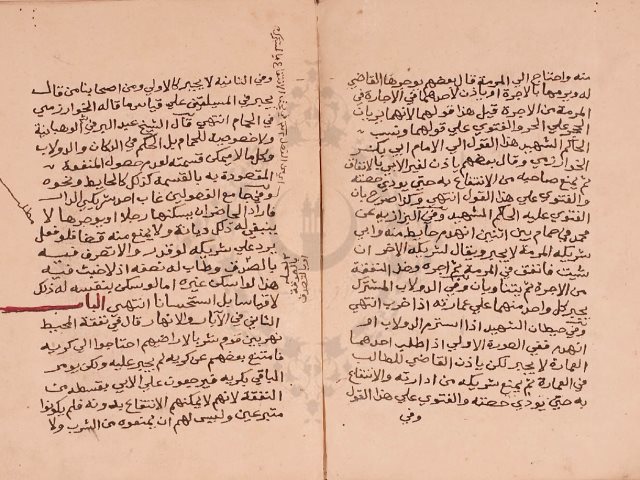 منه واحتاج الي المرمة قال بعضهم يوجرها القاضي
له ويرمها بالاجرة او ياذن لاحدهما في الاجارة في
المرمة من الاجرة قيل هذا قولهما لانهما يريان
الحجر علي الحر والفتوي علي قولهما ونسب
الحاكم الشهيد هذا القول الي الامام ابي بكر
الخوارزمي وقال بعضهم ياذن لغير الابي بالانفاق
ثم يمنع صاحبه من الانتفاع به حتي يودي حصته
والفتوي علي هذا القول انتهي
الفتوي عليه الحاكم الشهيد وفي البزازيه عن
محمد في حمام بين اثنين انهدم حايط منه وابي
شريكه المرمة لا يجبر ويقال لشريكه الاخر ان
شيت فانفق في المرمة ثم اجره وخذ النفقة
من الاجرة ثم وفي الدولاب المشترك
يجبر كل واحد منهما علي عمارته اذا خرب انتهي
وفي حيطان الشهيد اذا الدولاب او
انهدم ففي الصورة الاولي اذا طلب احدهما
العمارة لا يجبر لكن ياذن القاضي للطالب
في العمارة ثم يمنع شريكه من ادارته والانتفاع
به حتي يودي حصته والفتوي علي هذا القول
وفي
وفي الثانية لا يجبر كالاولي ومن اصحابنا من قال
يجبر في المسيلتين علي قياس ما قاله الخوارزمي
في الحمام انتهي قال الشيخ عبد البر في الوهبانية
ولا خصوصية للحمام بل الحكم في الدكان والدولاب
وكل ما لا يمكن قسمته لعدم حصول المنفعة
المقصودة به بالقسمة كذلك كالحايط ونحوه
وفي جامع الفصولين غاب احد شريكي الدار
فاراد الحاضر ان يسكنها رجلا او يوجرها لا
ينبغي له ذلك ديانة ولا يمنع منه قضا فلو فعل
يرد علي شريكه لو قدر والا تصرف فيه
بالصرف وطاب له نصفه اذ لا خبث فيه
هذا لو اسكن غيره اما لو سكن بنفسه له ذلك
لا قياسا بل استحسانا انتهي الباب
الثاني في الابار والانهار قال في نفقة المحيط
نهر بين قوم شربا لاراضيهم احتاجوا الي كريه
فامتنع بعضهم عن كريه لم يجبر عليه ولكن يومر
الباقي بكريه فيرجعون علي الابي بقسطه من
النفقة لانهم لا يمكنهم الانتفاع بدونه فلم يكونوا
متبرعين وليس لهم ان يمنعوه من الشرب ولا